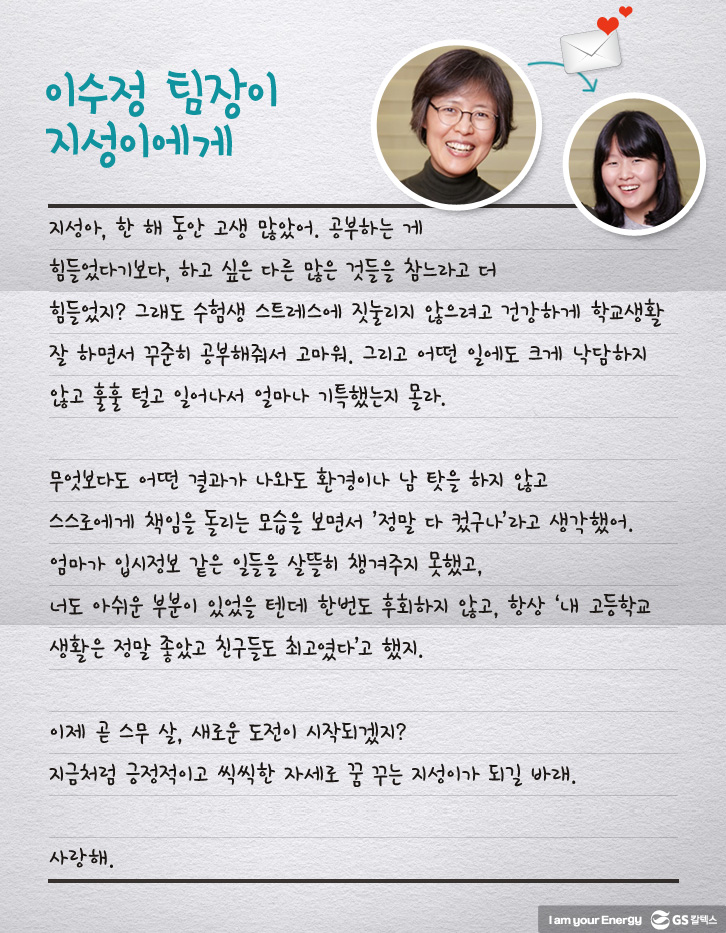 이수정 팀장이
지성이에게
지성아, 한 해 동안 고생 많았어. 공부하는 게
힘들었다기보다, 하고 싶은 다른 많은 것들을 참느라고 더
힘들었지? 그래도 수험생 스트레스에 짓눌리지 않으려고 건강하게 학교생활
잘 하면서 꾸준히 공부해줘서 고마워. 그리고 어떤 일에도 크게 낙담하지
않고 훌훌 털고 일어나서 얼마나 기특했는지 몰라.
무엇보다도 어떤 결과가 나와도 환경이나 남 탓을 하지 않고
스스로에게 책임을 돌리는 모습을 보면서 '정말 다 컸구나'라고 생각했어.
엄마가 입시정보 같은 일들을 살뜰히 챙겨주지 못했고,
너도 아쉬운 부분이 있었을 텐데 한번도 후회하지 않고, 항상 '내 고등학교
생활은 정말 좋았고 친구들도 최고였다'고 했지.
이제 곧 스무 살, 새로운 도전이 시작되겠지?
지금처럼 긍정적이고 씩씩한 자세로 꿈 꾸는 지성이가 되길 바래.
사랑해.
I am your Energy GS칼텍스